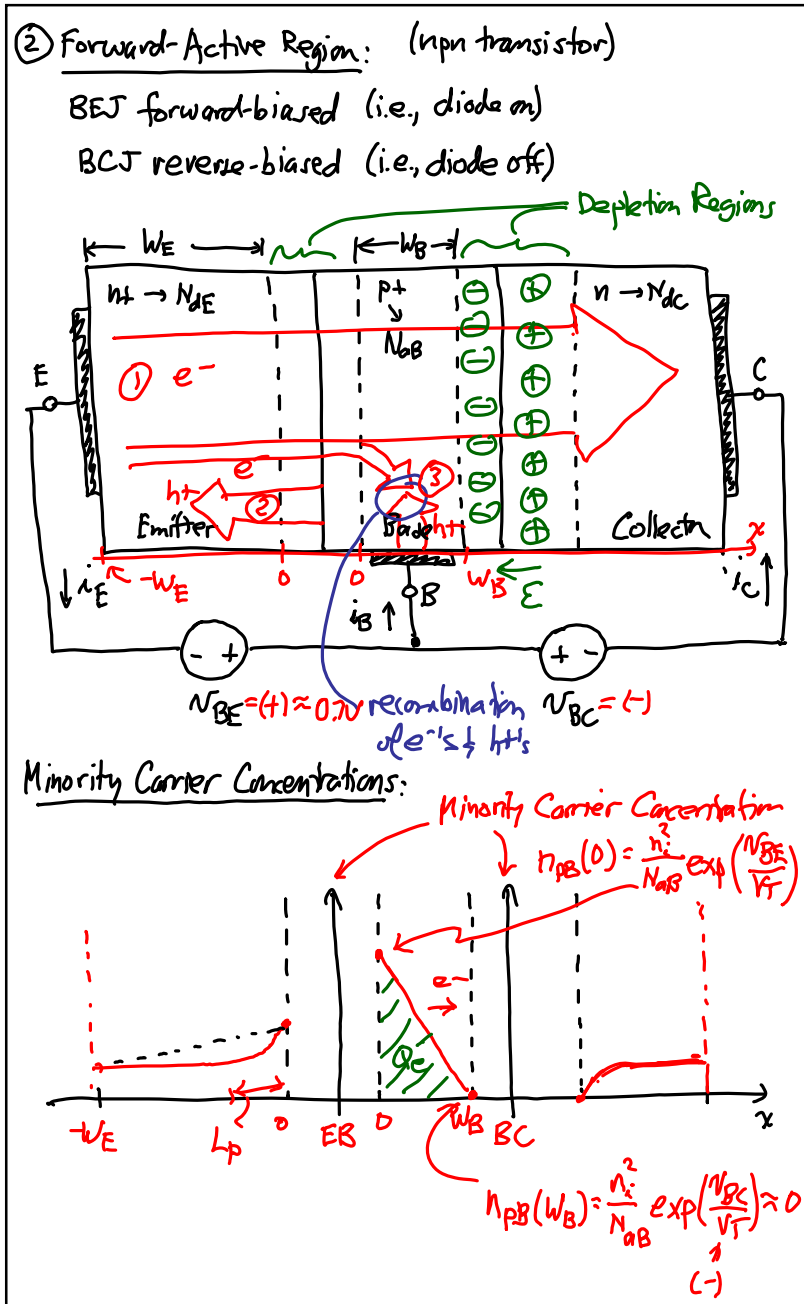 ② Forward-Active Region: (npn transistor)
BEJ forward-biased (i.e., diode on)
BCJ reverse-biased (i.e., diode off)
Depletion Regions
W_E
W_B
n+ → N_dE
p+
↓
N_aB
n → N_dC
① e⁻
E
C
e⁻
③
h+
②
h+
Emitter
Base
Collector
x
-W_E
0
0
W_B
ℰ
i_E
i_B
B
i_C
- +
+ -
v_BE =(+) ≈ 0.7V
recombination
v_BC = (-)
of e⁻'s & h+'s
Minority Carrier Concentrations:
Minority Carrier Concentration
n_pB(0) = n_i²/N_aB exp(v_BE/V_T)
e⁻
Q_e
-W_E
L_p
0
EB
0
W_B
BC
x
n_pB(W_B) = n_i²/N_aB exp(v_BC/V_T) ≈ 0
(-)